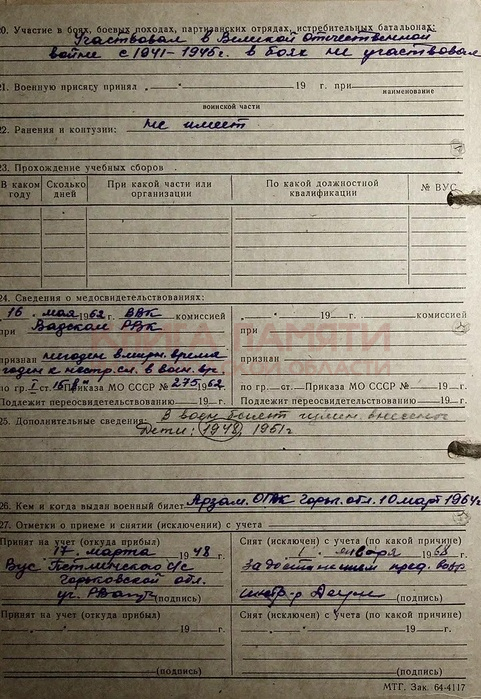 20. Участие в боях, боевых походах, партизанских отрядах, истребительных батальонах:
Участвовал в Великой Отечественной
войне с 1941-1945г. в боях не участвовал
21. Военную присягу принял „ “ 19 г. при
наименование
воинской части
22. Ранения и контузии: не имеет
23. Прохождение учебных сборов
В каком году Сколько дней При какой части или организации По какой должностной квалификации № ВУС
24. Сведения о медосвидетельствованиях:
16 мая 1962 г. ВВК комиссией
при Вадском РВК
признан негоден в мирн. время
годен к нестр. сл. в воен. вр.
по гр. I ст. 16 "в" Приказа МО СССР № 275 1962 г.
Подлежит переосвидетельствованию 19 г.
„ “ 19 г. комиссией
при
признан
по гр. ст. Приказа МО СССР № 19 г.
Подлежит переосвидетельствованию 19 г.
КНИГА ПАМЯТИ
ОБЛАСТИ
25. Дополнительные сведения: В воен. билет
Дети: 1948, 1951г
26. Кем и когда выдан военный билет Арзам. ОГВК Горьк. обл. 10 март 1964г
27. Отметки о приеме и снятии (исключении) с учета
Принят на учет (откуда прибыл)
17. марта 1948 г.
Вус с/с
Горьковской обл.
(подпись)
Снят (исключен) с учета (по какой причине)
1. января 1968 г.
За достижением пред. возр
инстр-р
(подпись)
Принят на учет (откуда прибыл)
„ “ 19 г.
(подпись)
Снят (исключен) с учета (по какой причине)
„ “ 19 г.
(подпись)
МТГ. Зак. 64-4117